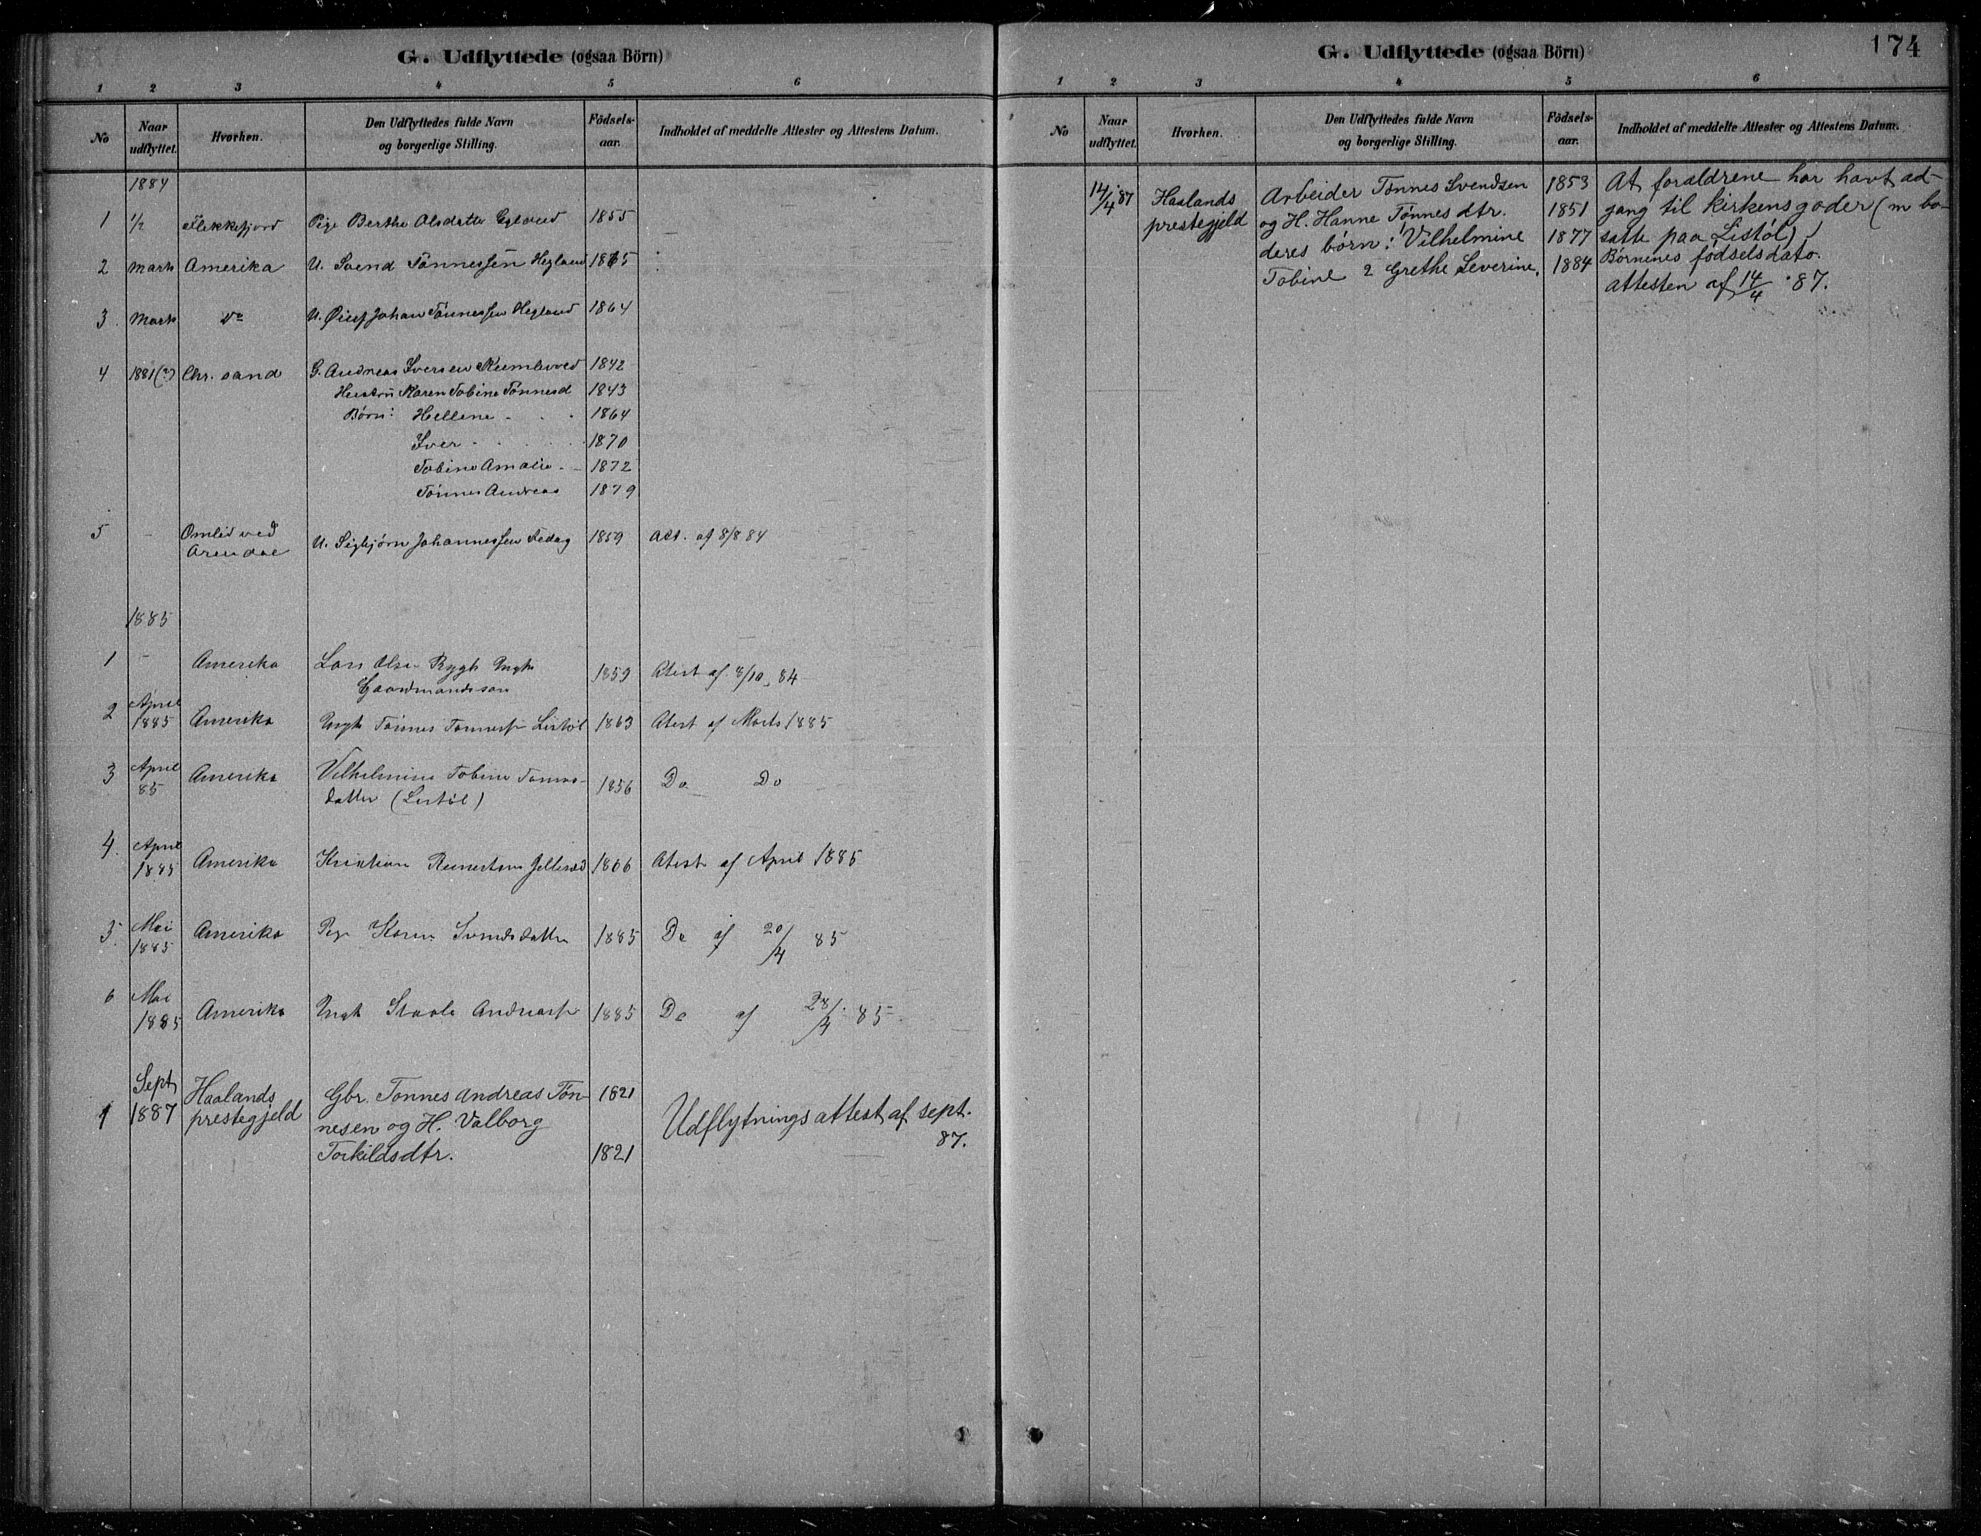 G. Udflyttede (ogsaa Börn)
1 2 3 4 5 6
No Naar udflyttet. Hvorhen. Den Udflyttedes fulde Navn og borgerlige Stilling. Födsels-aar. Indholdet af meddelte Attester og Attestens Datum.
1884
1 1/2 Flekkefjord Pige Berthe Olsdatter 1855
2 Marts Amerika U. Svend Tönnessen Hegland 1865
3. Marts do U. Johan Tönnessen Hegland 1864
4 1881(?) Chr.sand G. Andreas Iversen 1842
Hustru Karen Tobine Tönnesd 1843
Börn: Hellene - 1864
Iver - 1870
Tobine Amalie - 1872
Tönnes Andreas 1879
5 - Omlid ved Arendal U. Sigbjörn Johannessen Fedog 1859 Att. af 8/8 84
1885
1 - Amerika Lars Olsen Rygh Ungk 1859 Atest af 8/10 84
Gaardmandssön
2 April 1885 Amerika Ungk Tönnes Tönness Listöl 1863 Atest af Marts 1885
3 April 85 Amerika Vilhelmine Tobine Tönnes- 1856 Do Do
datter (Listöl)
4. April 1885 Amerika Kristian Reinertsen 1866 Atest af April 1885
5. Mai 1885 Amerika Pige Karen Svendsdatter 1885 Do af 20/4 85
6 Mai 1885 Amerika Ungk Staale Andreass 1885 Do af 28/4 85.
1 Sept 1887 Haalands prestegjeld Gbr. Tønnes Andreas Tøn- 1821
nesen og H. Valborg Udflytningsattest af sept.
Torkildsdtr. 1821 87.
G. Udflyttede (ogsaa Börn) 174
1 2 3 4 5 6
No Naar udflyttet. Hvorhen. Den Udflyttedes fulde Navn og borgerlige Stilling. Födsels-aar. Indholdet af meddelte Attester og Attestens Datum.
14/4 87 Haalands Arbeider Tønnes Svendsen 1853 At forældrene har havt ad-
prestegjeld og H. Hanne Tønnesdtr. 1851 gang til kirkens goder (m bo-
deres børn: 1 Vilhelmine 1877 satte paa Listøl)
Tobine 2 Grethe Severine. 1884 Børnenes fødselsdato.
attesten af 14/4 87.